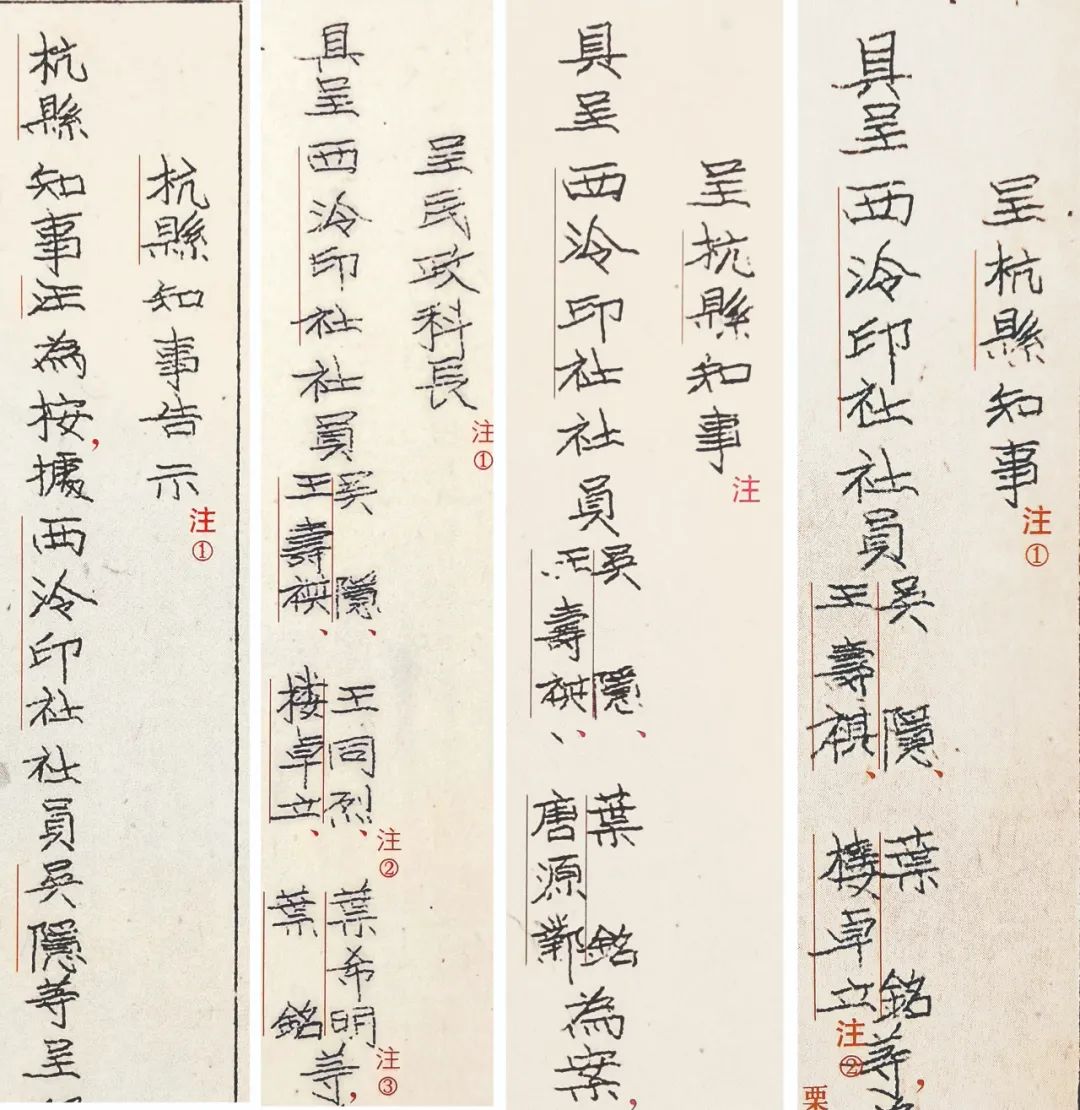 杭縣知事告示注①
杭縣知事汪為按，據西泠印社社員吳隱等呈
呈民政科長注①
具呈西泠印社社員
吳隱、
王壽祺、
王同烈、
樓卓立、注②
葉希明
葉銘
等，注③
呈杭縣知事注
具呈西泠印社社員
吳隱、
王壽祺、
葉銘
唐源鄴
為案，
呈杭縣知事注①
具呈西泠印社社員
吳隱、
王壽祺、
葉銘
樓卓立注②
等，
栗